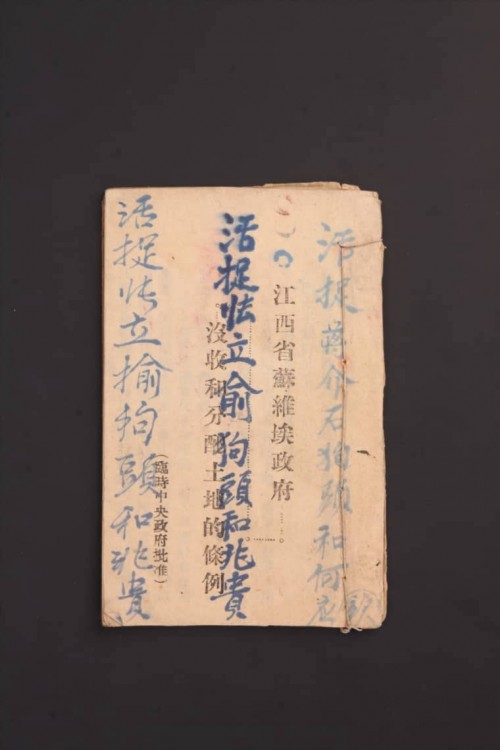 活捉蔣介石狗頭和何应
江西省蘇維埃政府
活捉怯立俞狗頭和兆貴
沒收和分配土地的條例
（臨時中央政府批准）
活捉怯立揄狗頭和兆貴